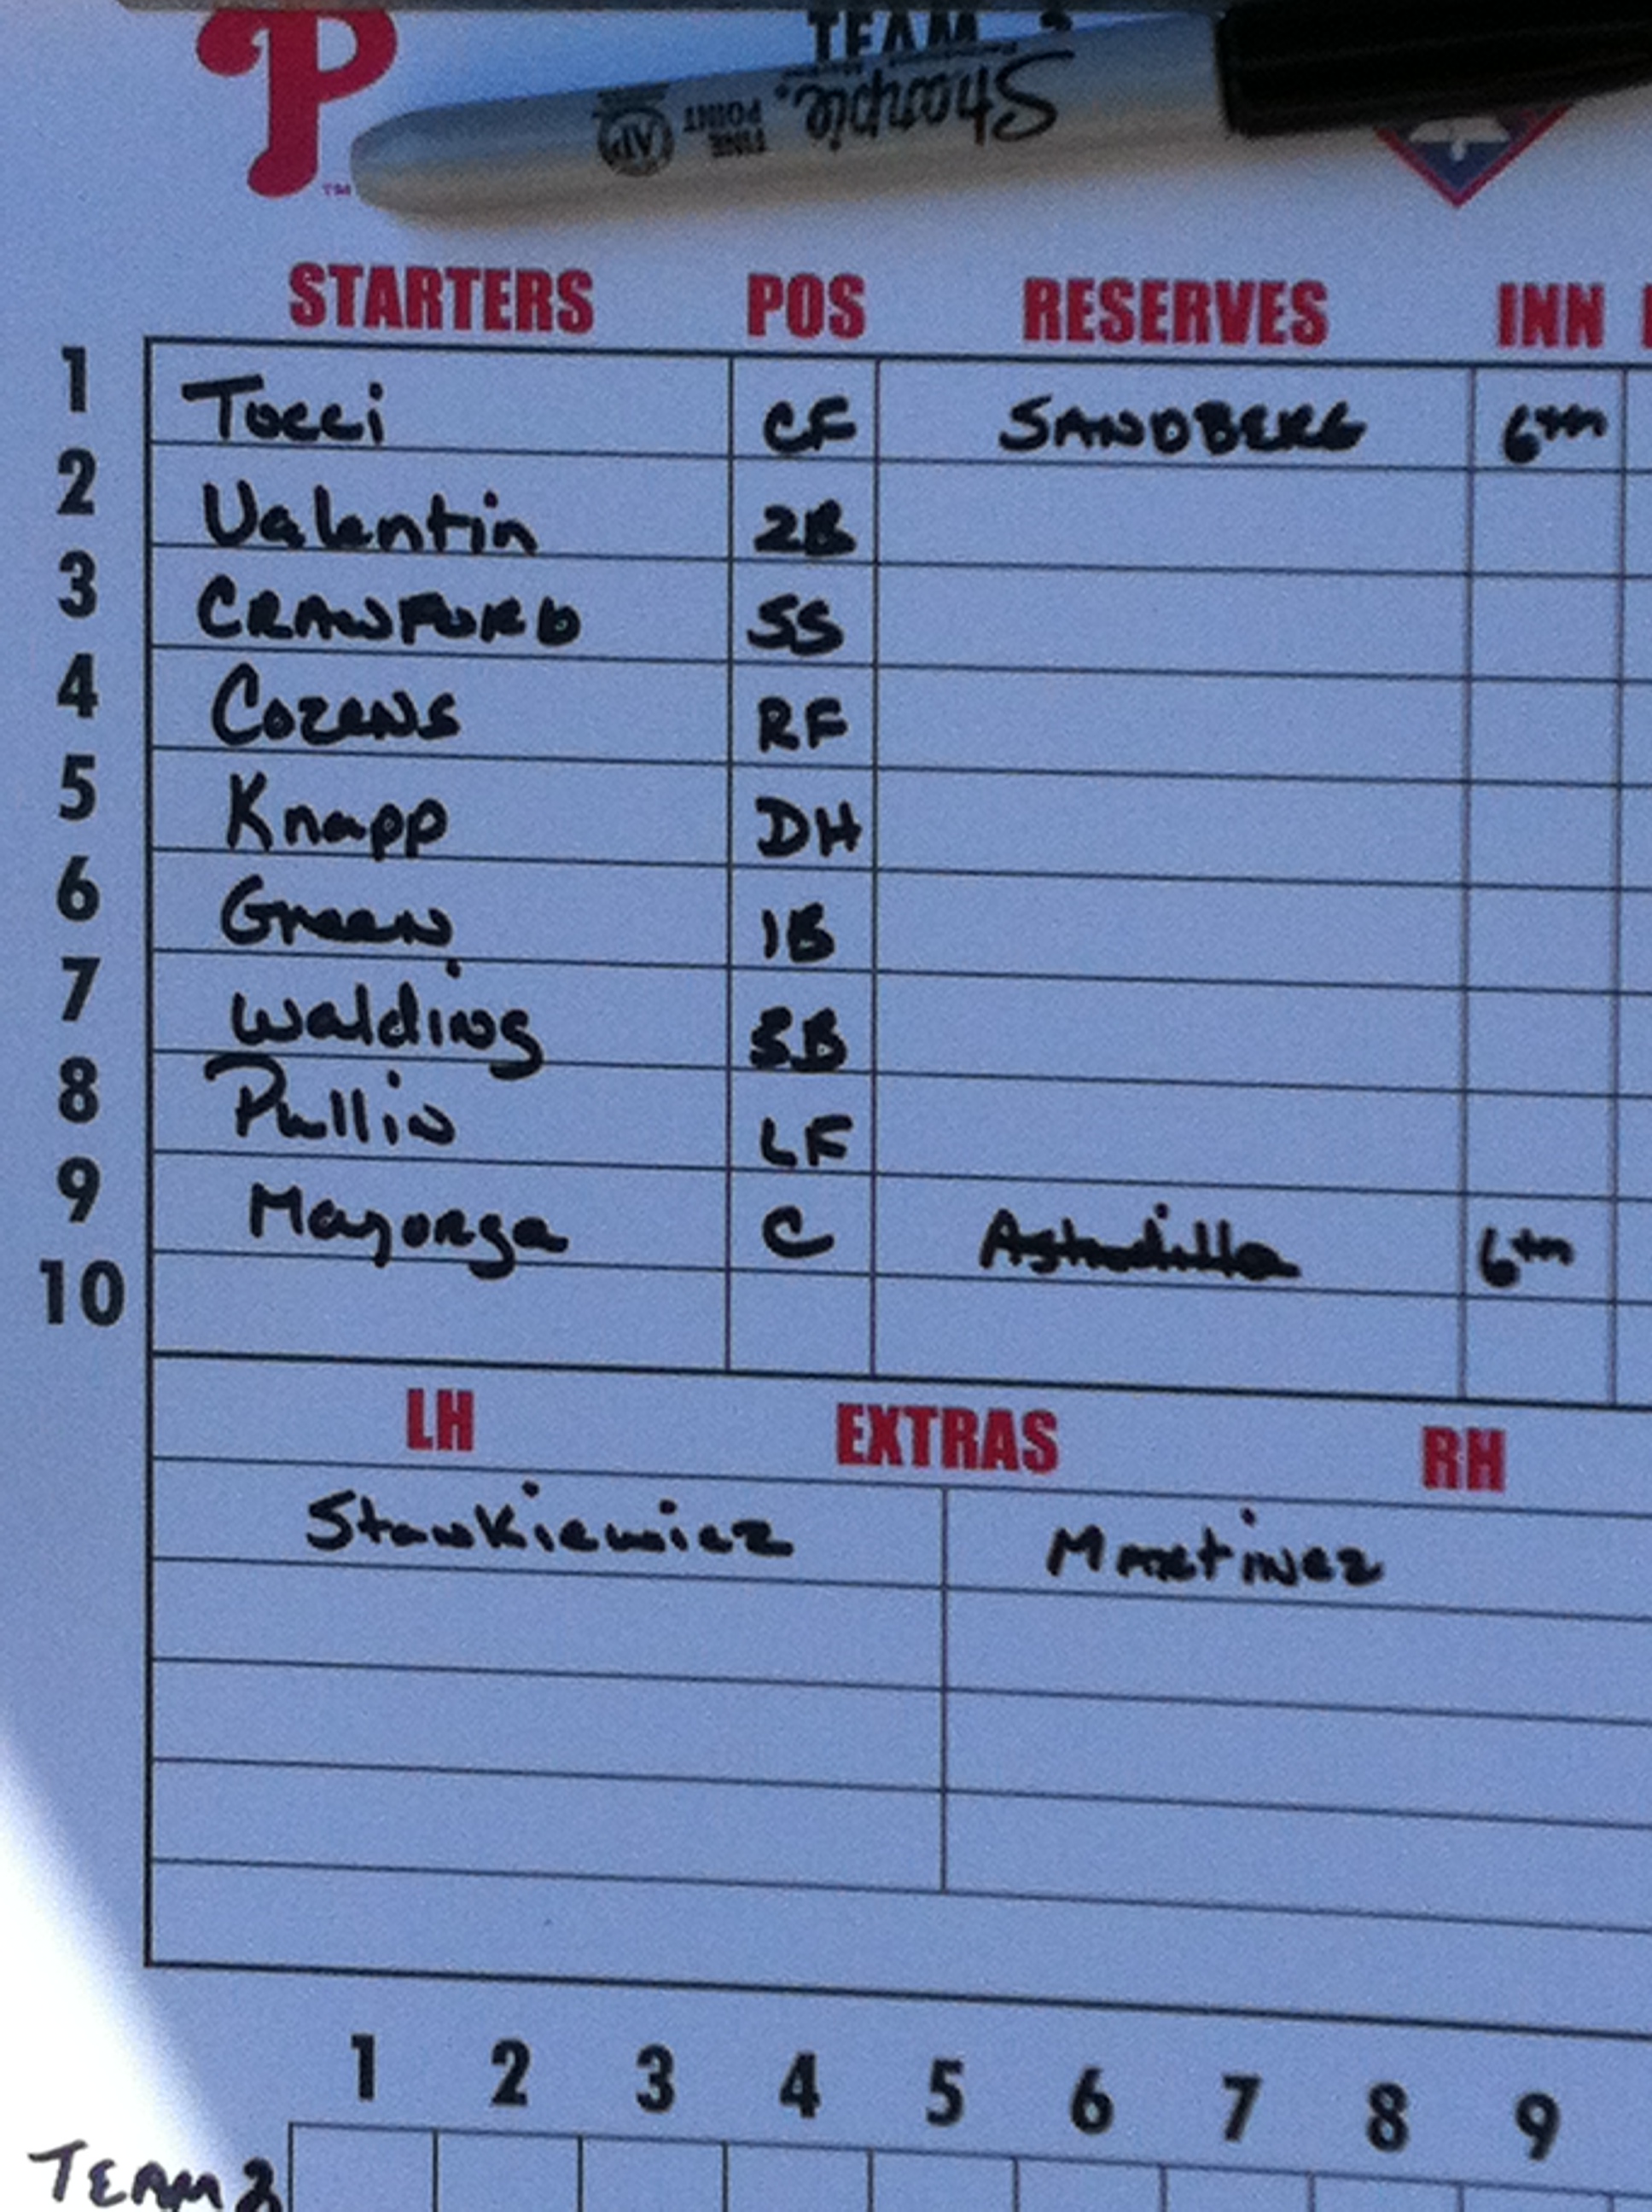 P
TM
TEAM
Sharpie.
FINE POINT
AP
STARTERS POS RESERVES INN
1 Tocci CF SANDBERG 6th
2 Valentin 2B
3 CRAWFORD SS
4 Cozens RF
5 Knapp DH
6 Green 1B
7 Walding 3B
8 Pullin LF
9 Mayorga C Astudillo 6th
10
LH EXTRAS RH
Stankiewicz Martinez
1 2 3 4 5 6 7 8 9
TEAM 2